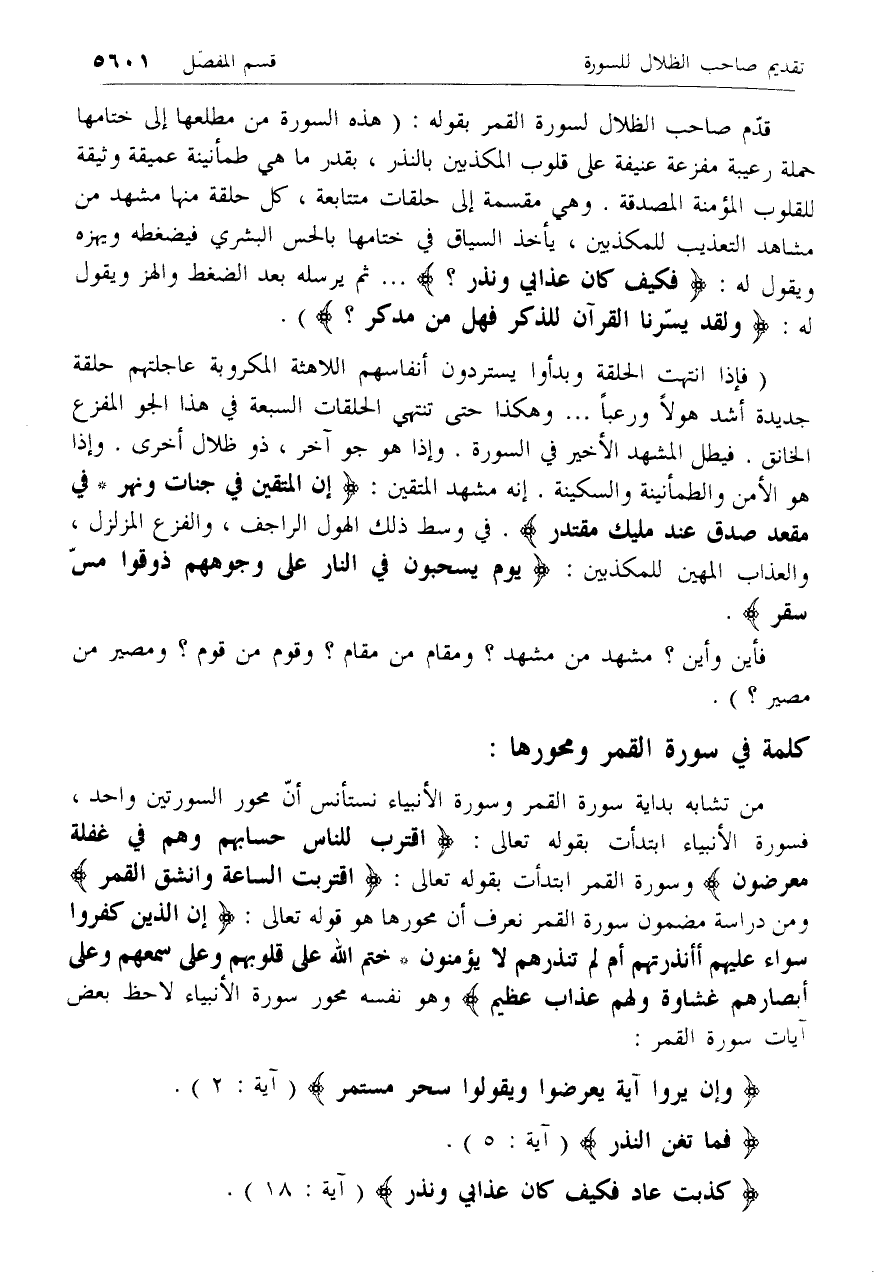 تقديم صاحب الظلال للسورة قسم المفصّل ٥٦٠١
قدّم صاحب الظلال لسورة القمر بقوله : ( هذه السورة من مطلعها إلى ختامها
حملة رعيبة مفزعة عنيفة على قلوب المكذبين بالنذر ، بقدر ما هي طمأنينة عميقة وثيقة
للقلوب المؤمنة المصدقة . وهي مقسمة إلى حلقات متتابعة ، كل حلقة منها مشهد من
مشاهد التعذيب للمكذبين ، يأخذ السياق في ختامها بالحس البشري فيضغطه ويهزه
ويقول له : ﴿ فكيف كان عذابي ونذر ؟ ﴾ ... ثم يرسله بعد الضغط والهز ويقول
له : ﴿ ولقد يسّرنا القرآن للذكر فهل من مدكر ؟ ﴾ ) .
( فإذا انتهت الحلقة وبدأوا يستردون أنفاسهم اللاهثة المكروبة عاجلتهم حلقة
جديدة أشد هولاً ورعباً ... وهكذا حتى تنتهي الحلقات السبعة في هذا الجو المفزع
الخانق . فيطل المشهد الأخير في السورة . وإذا هو جو آخر ، ذو ظلال أخرى . وإذا
هو الأمن والطمأنينة والسكينة . إنه مشهد المتقين : ﴿ إن المتقين في جنات ونهر * في
مقعد صدق عند مليك مقتدر ﴾ . في وسط ذلك الهول الراجف ، والفزع المزلزل ،
والعذاب المهين للمكذبين : ﴿ يوم يسحبون في النار على وجوههم ذوقوا مسّ
سقر ﴾ .
فأين وأين ؟ مشهد من مشهد ؟ ومقام من مقام ؟ وقوم من قوم ؟ ومصير من
مصير ؟ ) .
كلمة في سورة القمر ومحورها :
من تشابه بداية سورة القمر وسورة الأنبياء نستأنس أنّ محور السورتين واحد ،
فسورة الأنبياء ابتدأت بقوله تعالى : ﴿ اقترب للناس حسابهم وهم في غفلة
معرضون ﴾ وسورة القمر ابتدأت بقوله تعالى : ﴿ اقتربت الساعة وانشق القمر ﴾
ومن دراسة مضمون سورة القمر نعرف أن محورها هو قوله تعالى : ﴿ إن الذين كفروا
سواء عليهم أأنذرتهم أم لم تنذرهم لا يؤمنون * ختم الله على قلوبهم وعلى سمعهم وعلى
أبصارهم غشاوة ولهم عذاب عظيم ﴾ وهو نفسه محور سورة الأنبياء لاحظ بعض
آيات سورة القمر :
﴿ وإن يروا آية يعرضوا ويقولوا سحر مستمر ﴾ ( آية : ٢ ) .
﴿ فما تغن النذر ﴾ ( آية : ٥ ) .
﴿ كذبت عاد فكيف كان عذابي ونذر ﴾ ( آية : ١٨ ) .